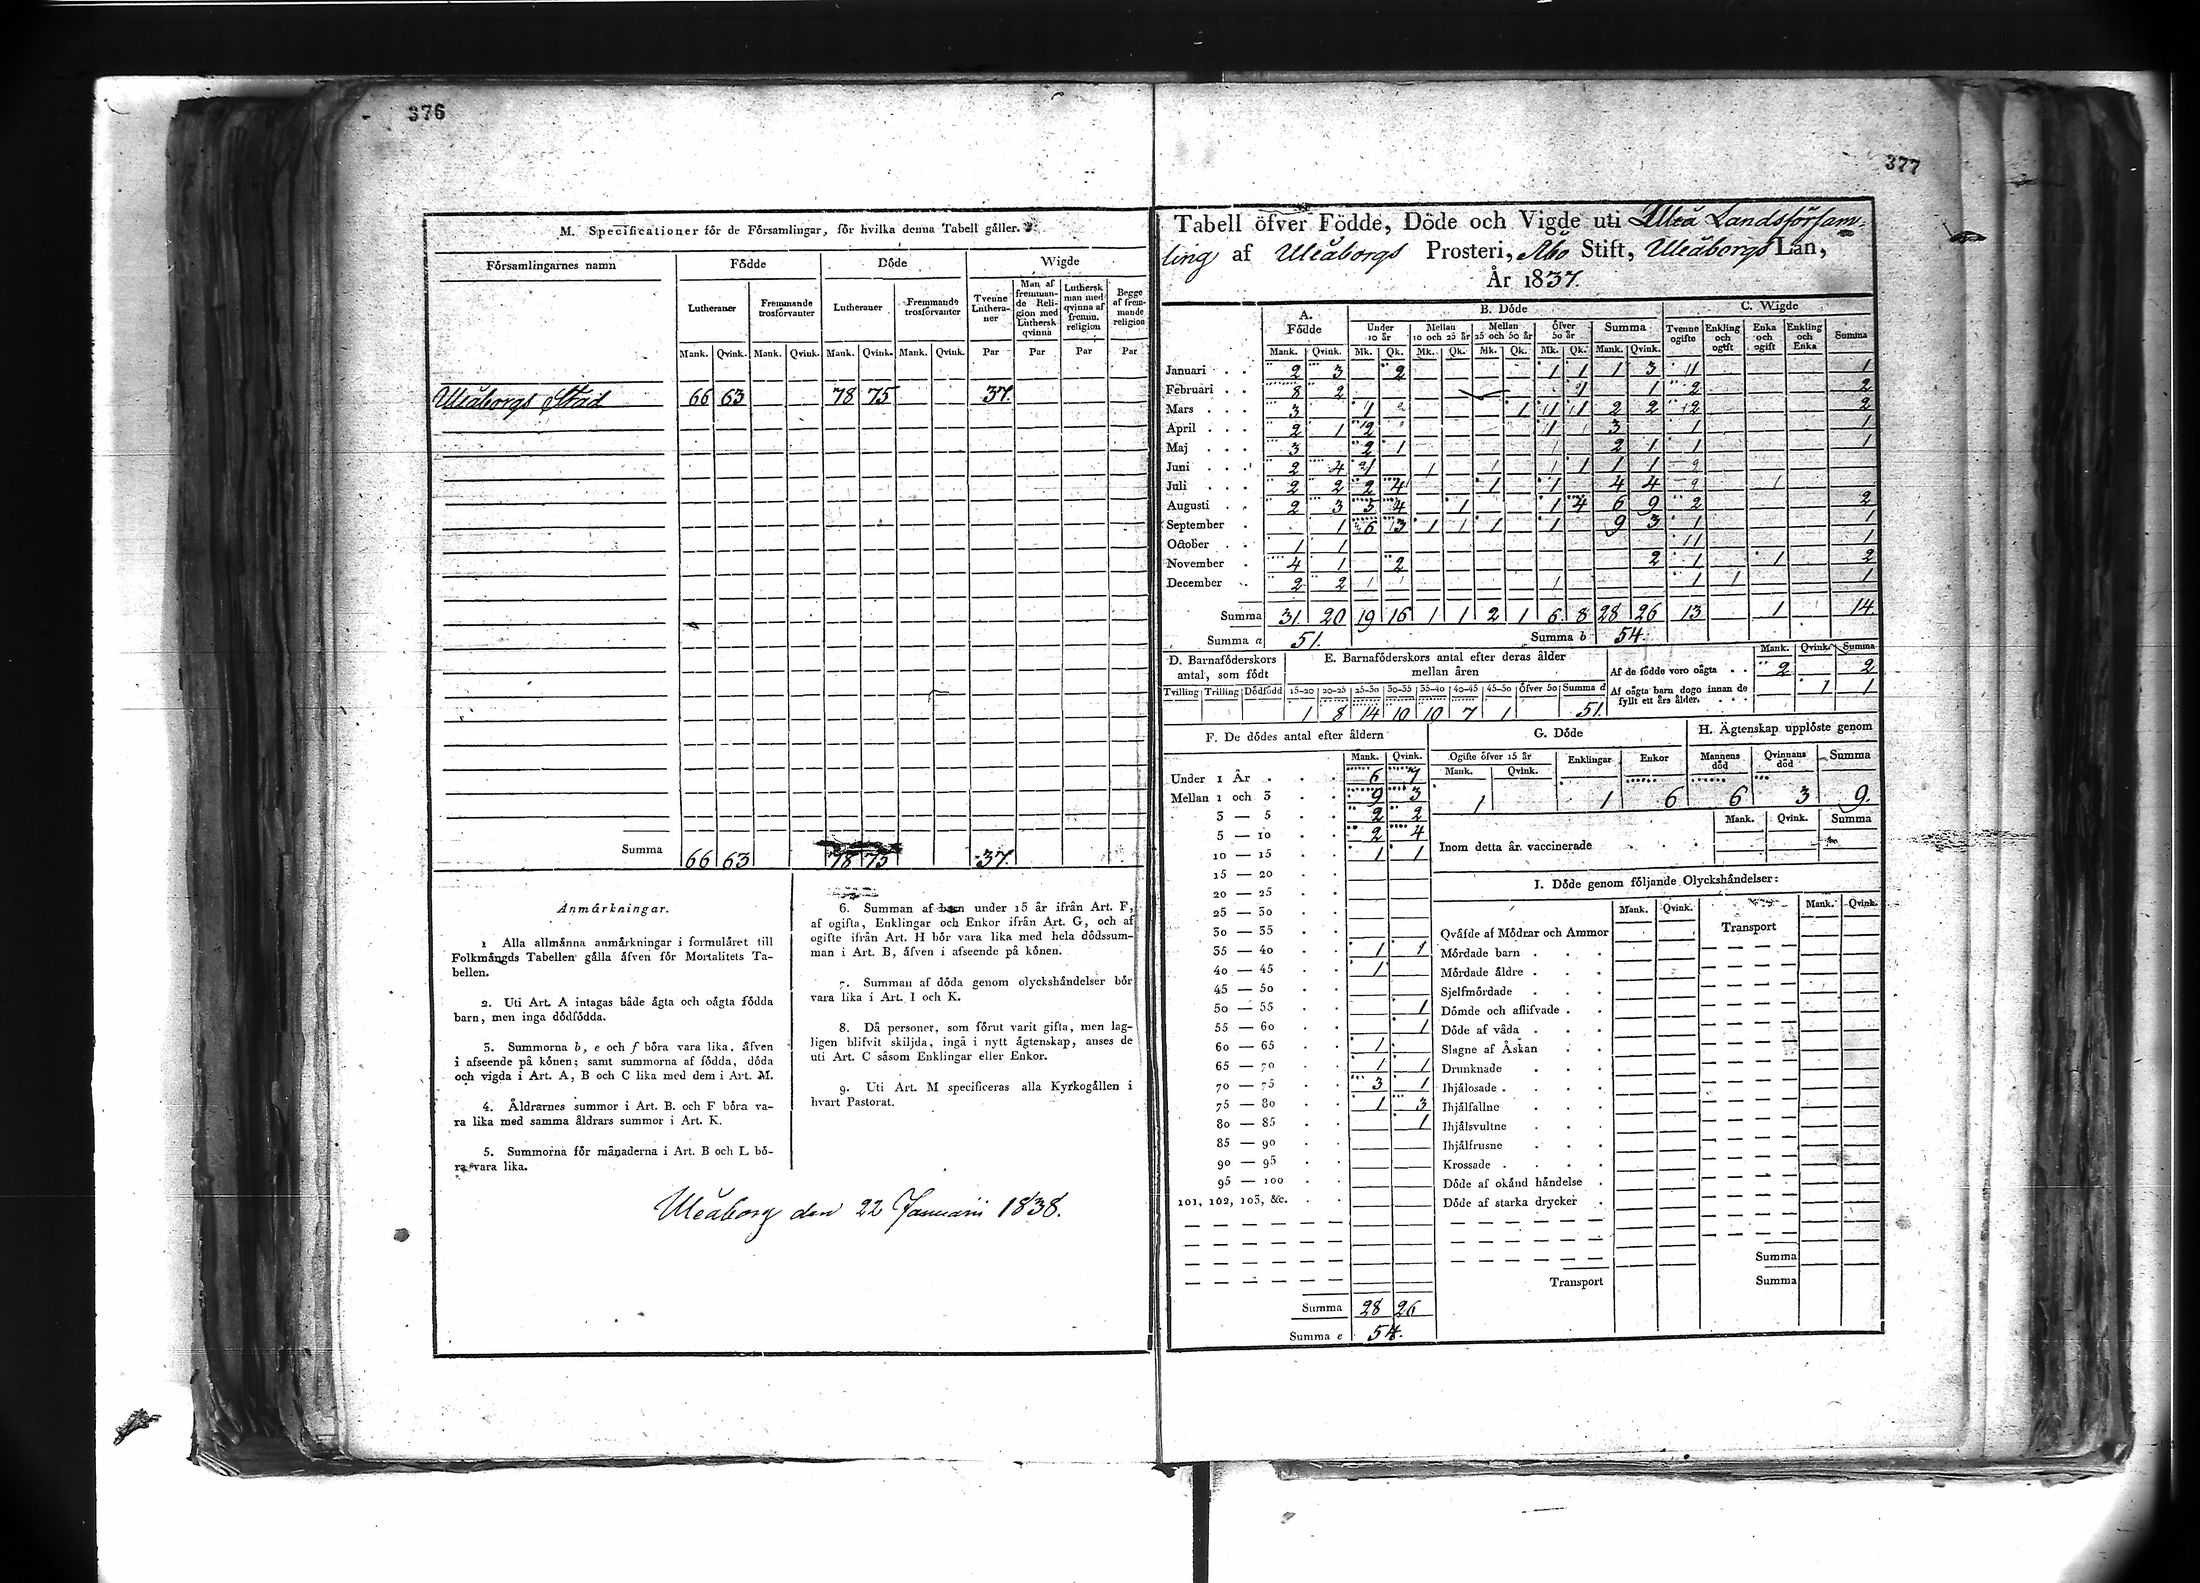 376
M. Specificationer för de Församlingar, för hvilka denna Tabell gäller.
Församlingarnes namn Födde Döde Wigde
Lutheraner Fremmande trosförvanter Lutheraner Fremmande trosförvanter Tvenne Lutheraner Man af fremmande Religion med Luthersk qvinna Luthersk man med qvinna af fremm. religion Begge af fremmande religion
Mank. Qvink. Mank. Qvink. Mank. Qvink. Mank. Qvink. Par Par Par Par
Uleåborgs Stad 66 63 78 75 37.
Summa 66 63 78 75 37.
Anmärkningar.
1 Alla allmänna anmärkningar i formuläret till
Folkmängds Tabellen gälla äfven för Mortalitets Ta-
bellen.
2. Uti Art. A intagas både ägta och oägta födda
barn, men inga dödfödda.
3. Summorna b, e och f böra vara lika, äfven
i afseende på könen; samt summorna af födda, döda
och vigda i Art. A, B och C lika med dem i Art. M.
4. Åldrarnes summor i Art. B. och F böra va-
ra lika med samma åldrars summor i Art. K.
5. Summorna för månaderna i Art. B och L bö-
ra vara lika.
6. Summan af barn under 15 år ifrån Art. F,
af ogifta, Enklingar och Enkor ifrån Art. G, och af
ogifte ifrån Art. H bör vara lika med hela dödssum-
man i Art. B, äfven i afseende på könen.
7. Summan af döda genom olyckshändelser bör
vara lika i Art. I och K.
8. Då personer, som förut varit gifta, men lag-
ligen blifvit skiljda, ingå i nytt ägtenskap, anses de
uti Art. C såsom Enklingar eller Enkor.
9. Uti Art. M specificeras alla Kyrkogällen i
hvart Pastorat.
Uleåborg den 22 Januarii 1838.
377
Tabell öfver Födde, Döde och Vigde uti Uleå Landsförsam-
ling af Uleåborgs Prosteri, Åbo Stift, Uleåborgs Län,
År 1837.
A. Födde B. Döde C. Wigde
Under 10 år Mellan 10 och 25 år Mellan 25 och 50 år Öfver 50 år Summa Tvenne ogifte Enkling och ogift Enka och ogift Enkling och Enka Summa
Mank. Qvink. Mk. Qk. Mk. Qk. Mk. Qk. Mk. Qk. Mank. Qvink.
Januari 2 3 2 1 1 1 3 1
Februari 8 2 1 2 2
Mars 3 1 1 2 2 2 2
April 2 1 2 1 3 1 1
Maj 3 2 1 2 1 1 1
Juni 2 4 1 1 1 1
Juli 2 2 2 4 1 1 4 4
Augusti 2 3 4 1 1 4 6 9 2 2
September 1 6 3 1 1 1 1 9 3 1 1
October 1 1 1
November 4 1 2 2 1 1 2
December 2 2 1 1
Summa 31 20 19 16 1 1 2 1 6 8 28 26 13 1 14.
Summa a 51. Summa b 54.
D. Barnaföderskors antal, som födt
E. Barnaföderskors antal efter deras ålder mellan åren
Mank. Qvink. Summa
Tvilling Trilling Dödfödd 15-20 20-25 25-30 30-35 35-40 40-45 45-50 Öfver 50 Summa d
1 8 14 10 10 7 1 51.
Af de födde voro oägta 2 2
Af oägta barn dogo innan de fyllt ett års ålder. 1 1
F. De dödes antal efter åldern
Mank. Qvink.
Under 1 År 6 7
Mellan 1 och 3 9 3
3 — 5 2 2
5 — 10 2 4
10 — 15 1 1
15 — 20
20 — 25
25 — 30
30 — 35
35 — 40 1 1
40 — 45 1
45 — 50
50 — 55 1
55 — 60 1
60 — 65 1
65 — 70 1 1
70 — 75 3 1
75 — 80 1 3
80 — 85 1
85 — 90
90 — 95
95 — 100
101, 102, 103, &c.
Summa 28 26
Summa e 54.
G. Döde
Ogifte öfver 15 år Enklingar Enkor
Mank. Qvink.
1 1 6
H. Ägtenskap upplöste genom
Mannens död Qvinnans död Summa
6 3 9.
Mank. Qvink. Summa
Inom detta år vaccinerade
I. Döde genom följande Olyckshändelser:
Mank. Qvink. Mank. Qvink.
Qväfde af Mödrar och Ammor Transport
Mördade barn
Mördade äldre
Sjelfmördade
Dömde och aflifvade
Döde af våda
Slagne af Åskan
Drunknade
Ihjälosade
Ihjälfallne
Ihjälsvultne
Ihjälfrusne
Krossade
Döde af okänd händelse
Döde af starka drycker
Summa
Transport Summa